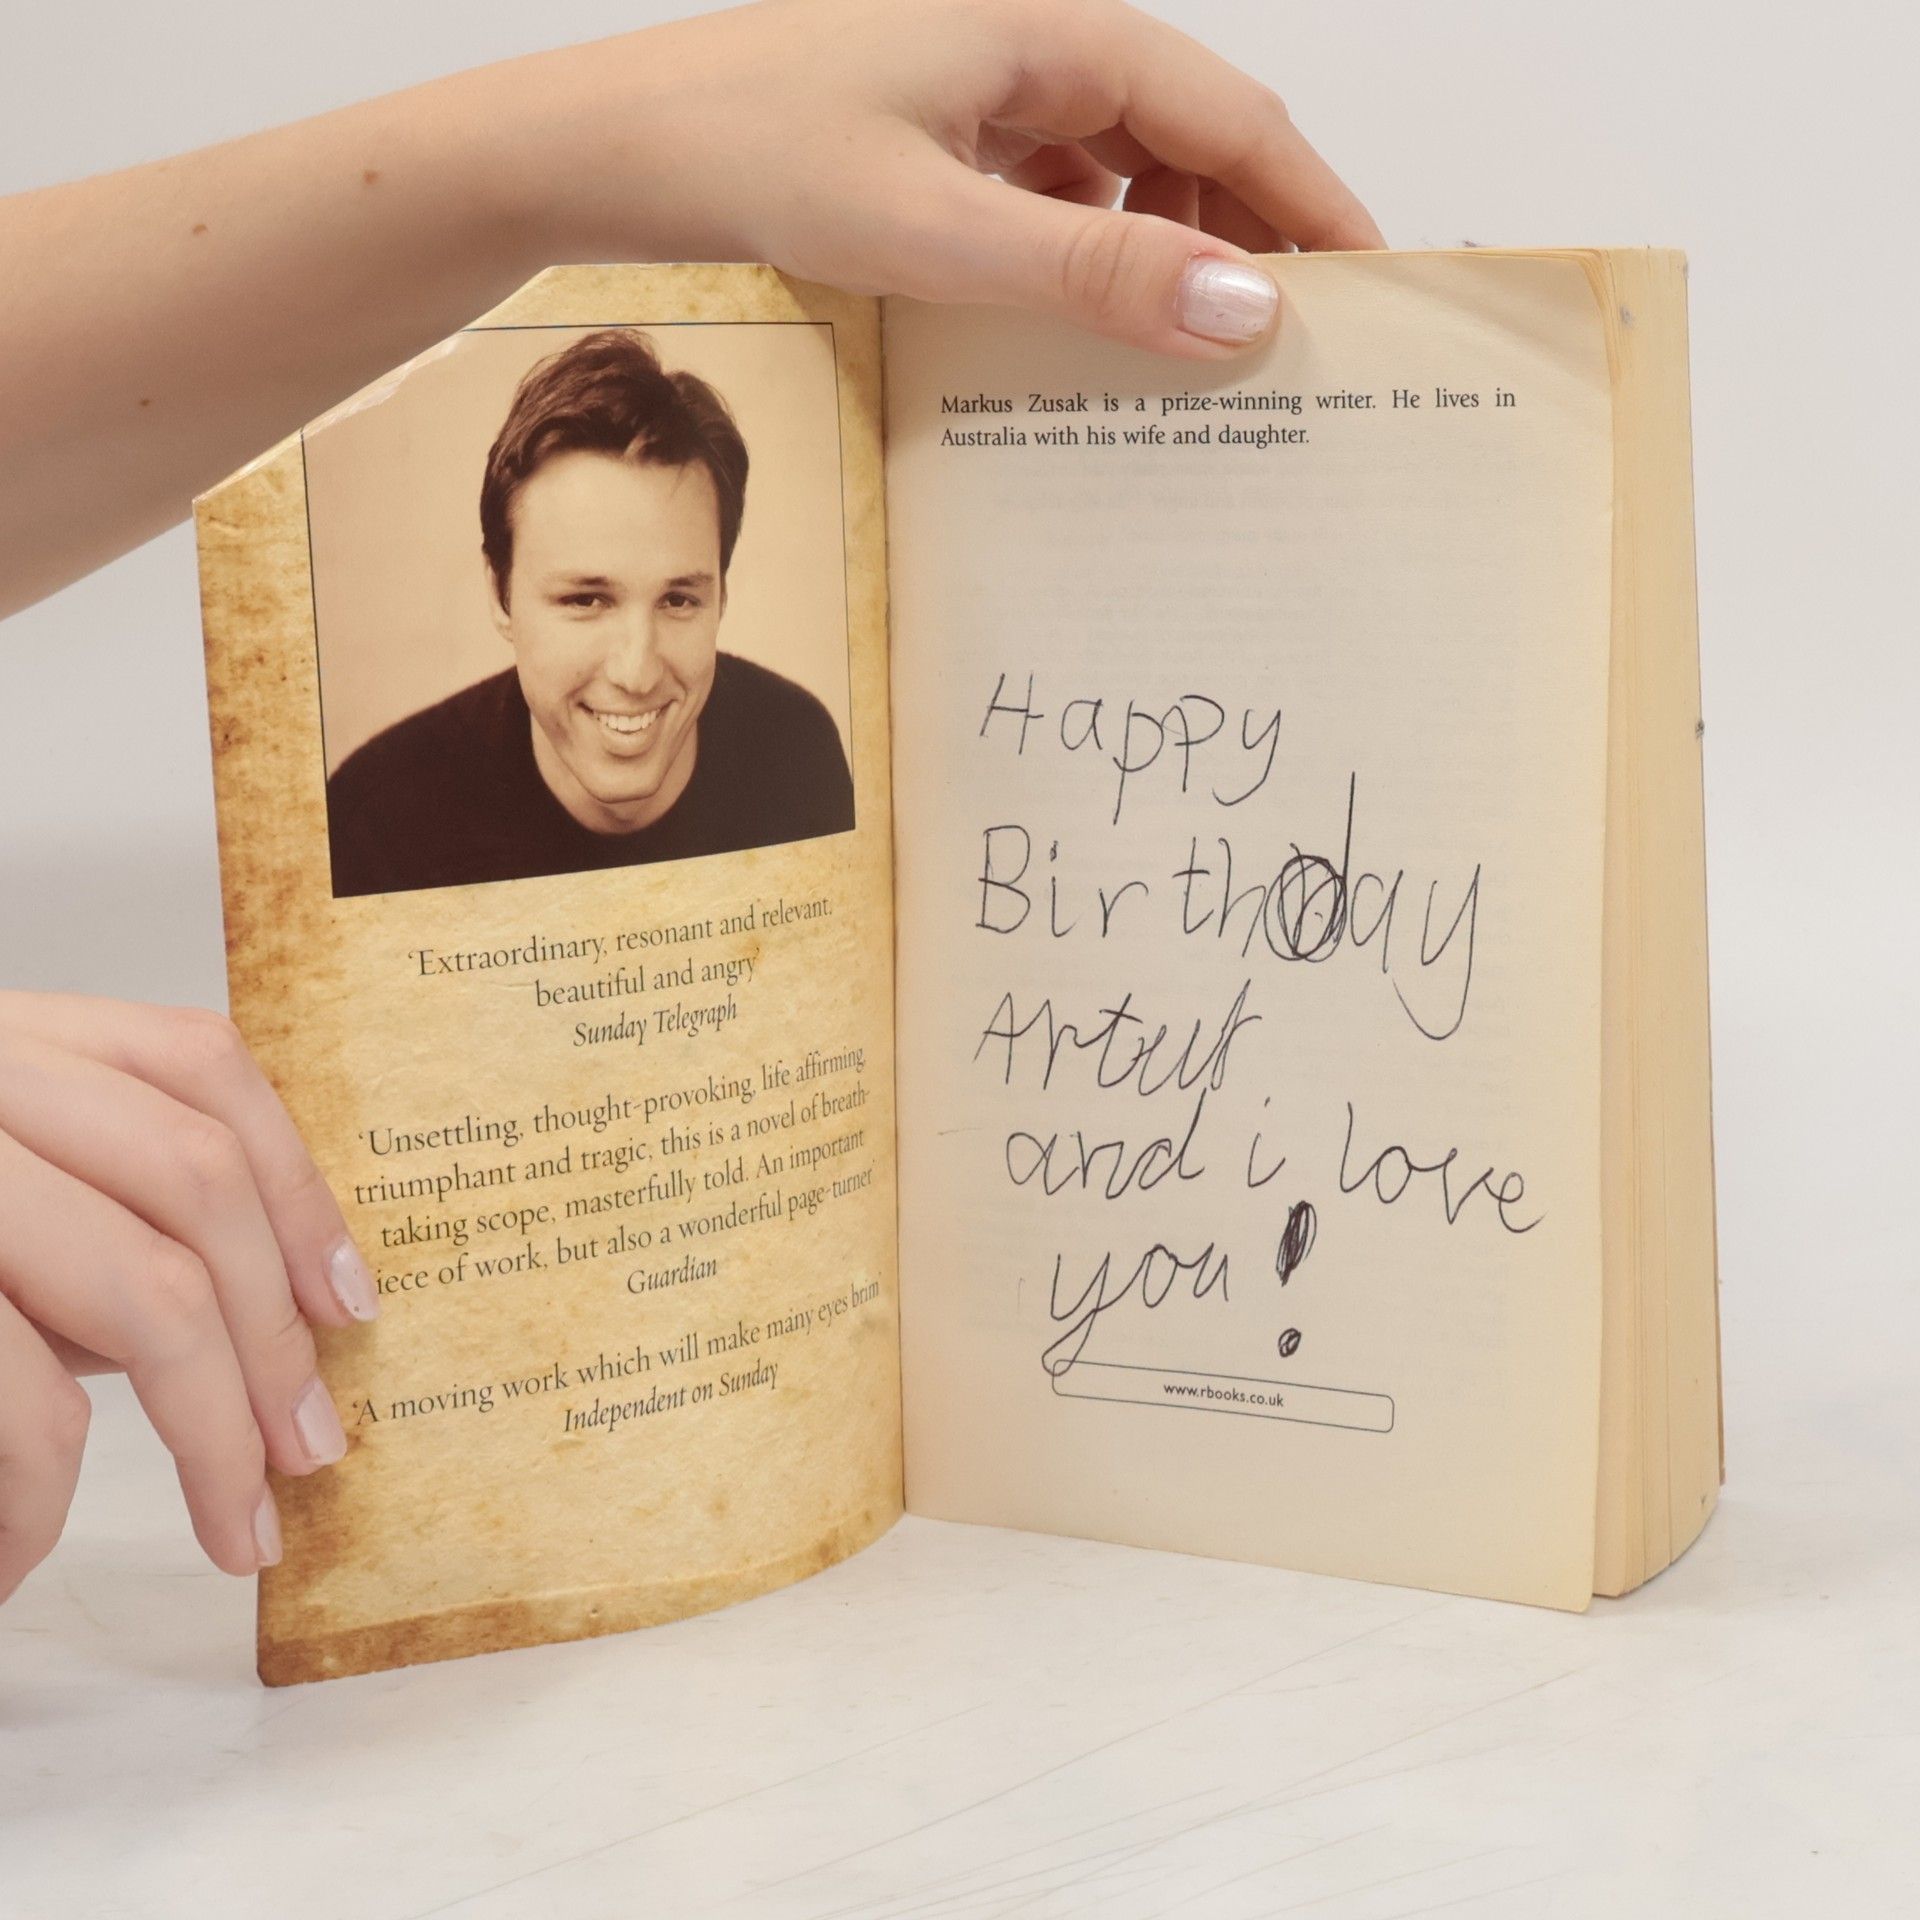 'Extraordinary, resonant and relevant,
beautiful and angry'
Sunday Telegraph
'Unsettling, thought-provoking, life affirming,
triumphant and tragic, this is a novel of breath-
taking scope, masterfully told. An important
iece of work, but also a wonderful page-turner'
Guardian
'A moving work which will make many eyes brim'
Independent on Sunday
Markus Zusak is a prize-winning writer. He lives in
Australia with his wife and daughter.
Happy
Birthday
and i love
you!
www.rbooks.co.uk